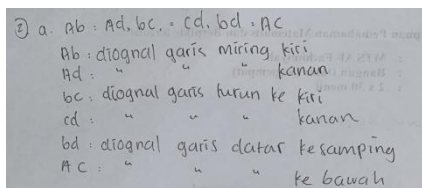 ② a. Ab : Ad, bc, = cd, bd : AC
Ab : diognal garis miring kiri
Ad : " " " kanan
bc : diognal garis turun ke kiri
cd : " " " kanan
bd : diognal garis datar kesamping
AC : " " " ke bawah